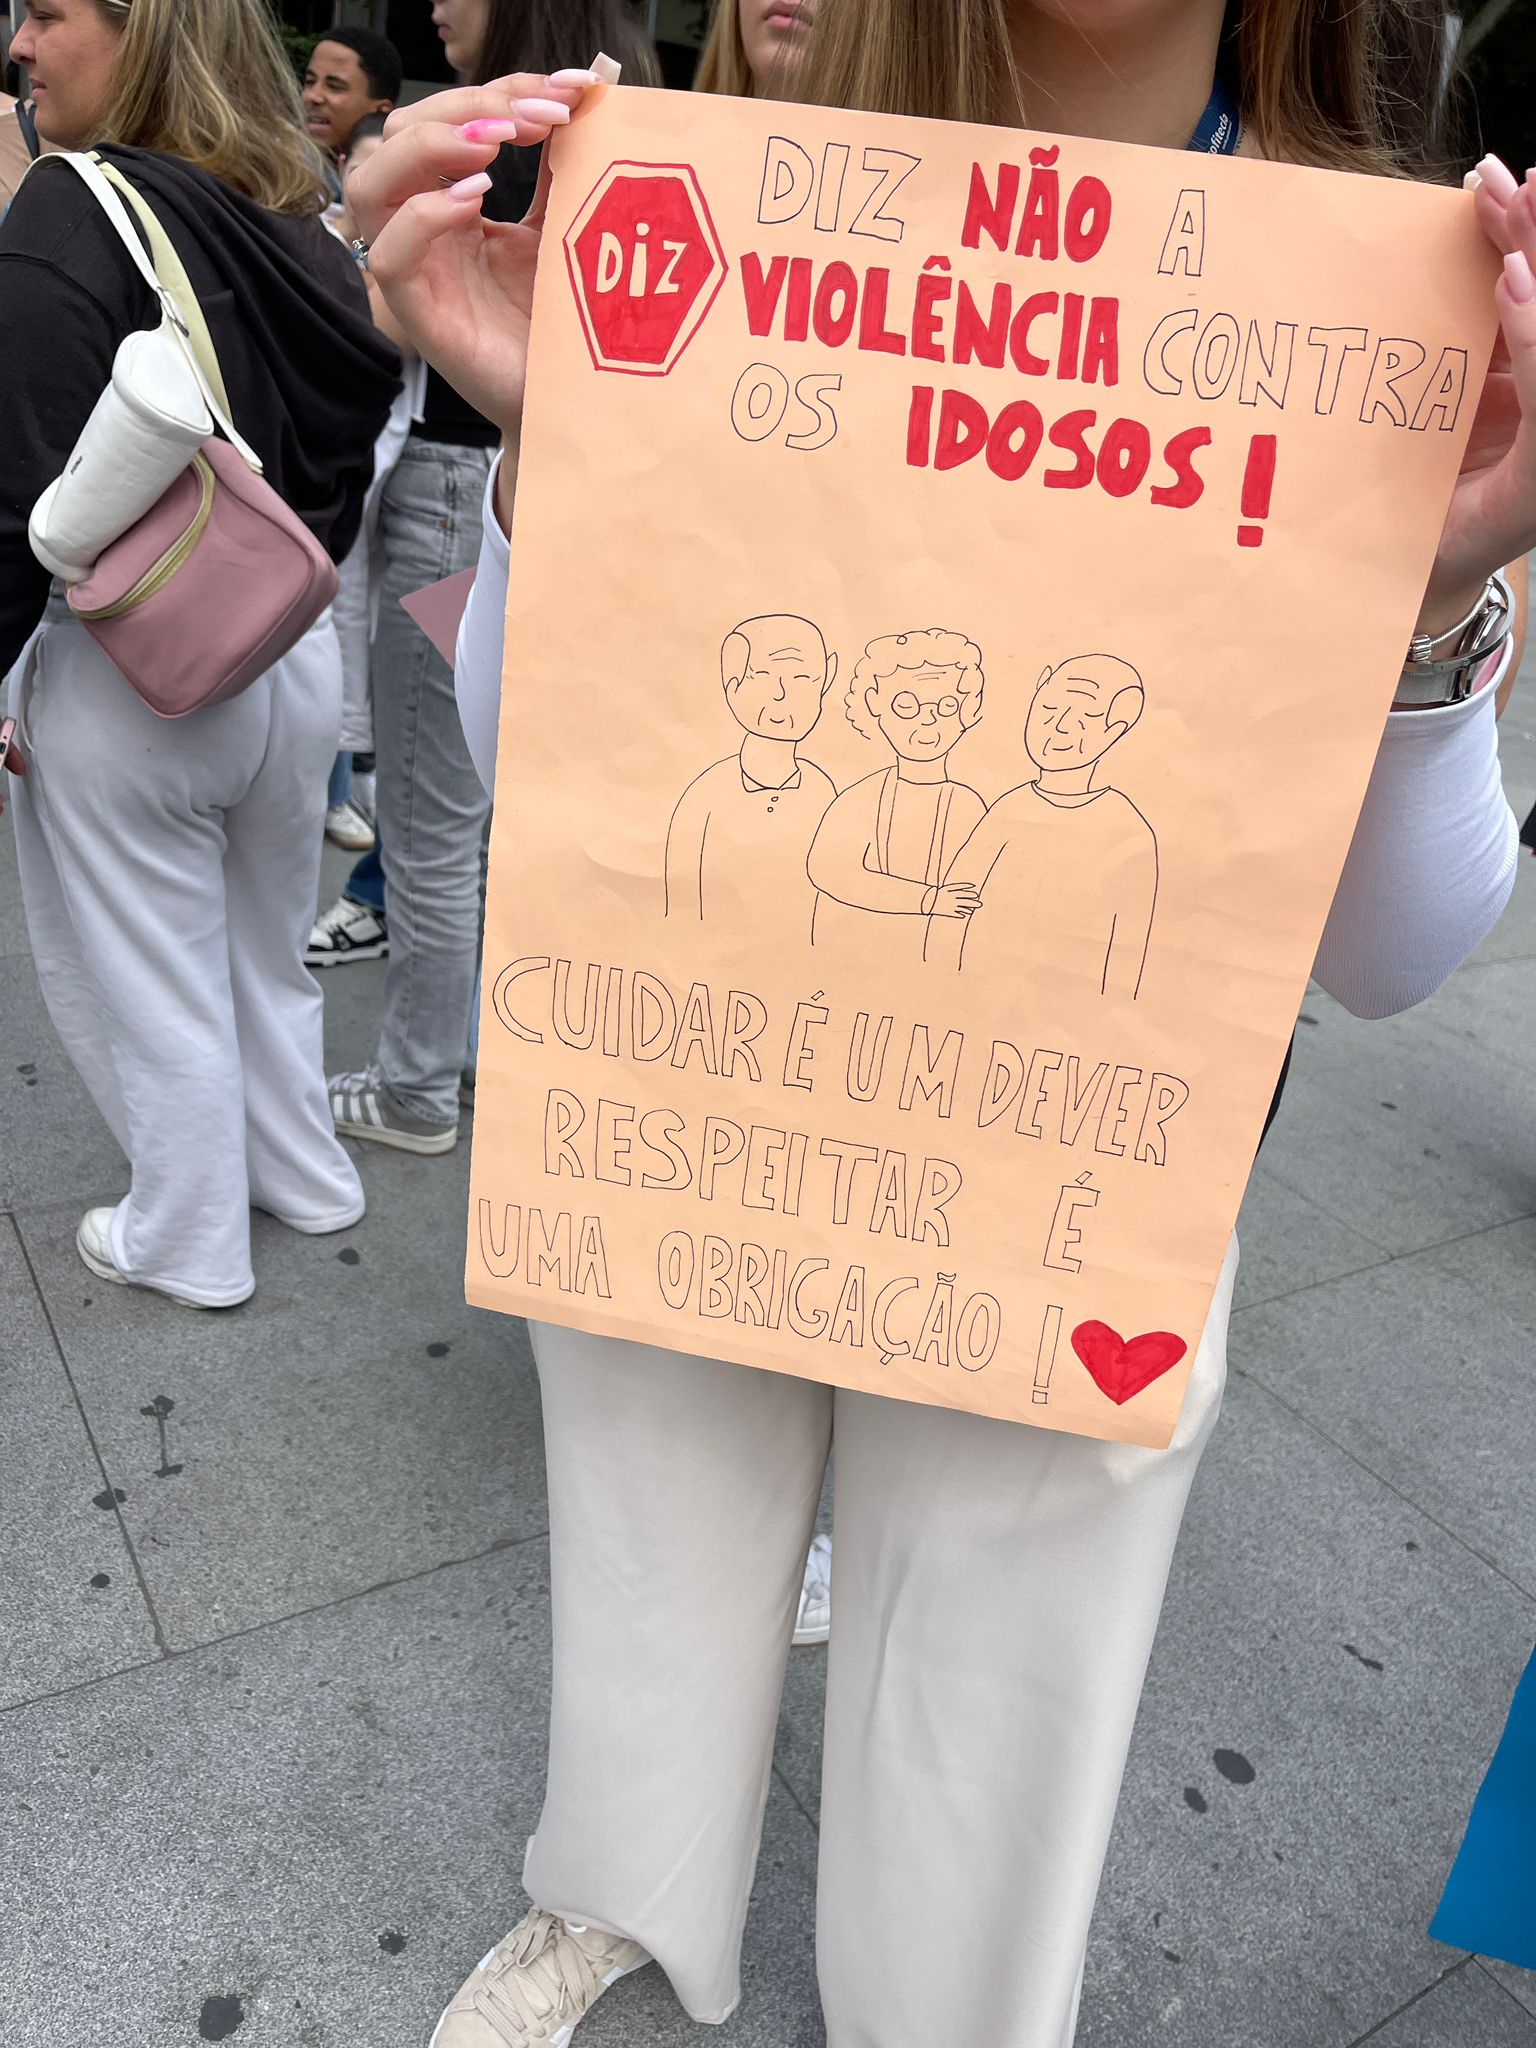 DIZ
DIZ NÃO A
VIOLÊNCIA CONTRA
OS IDOSOS!
CUIDAR É UM DEVER
RESPEITAR É
UMA OBRIGAÇÃO!